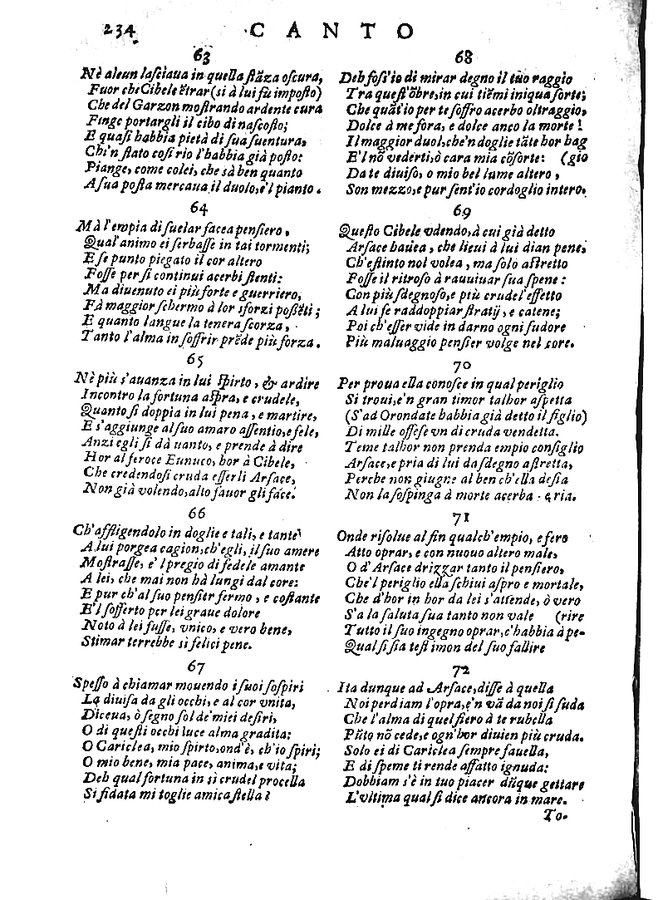 234 CANTO
63
Nè alcun lasciaua in quella stāza oscura,
Fuor che Cibele ētrar (si à lui fù imposto)
Che del Garzon mostrando ardente cura
Finge portargli il cibo di nascosto;
E quasi habbia pietà di sua suentura,
Ch'n stato cosi rio l'habbia già posto:
Piange, come colei, che sà ben quanto
A sua posta mercaua il duolo, e'l pianto.
64
Mà l'empia di suelar facea pensiero,
Qual' animo ei serbasse in tai tormenti;
E se punto piegato il cor altero
Fosse per si continui acerbi stenti:
Ma diuenuto ei più forte e guerriero,
Fà maggior schermo à lor sforzi possēti;
E quanto langue la tenera scorza,
Tanto l'alma in soffrir prēde più forza.
65
Nè più s'auanza in lui spirto, & ardire
Incontro la fortuna aspra, e crudele,
Quanto si doppia in lui pena, e martire,
E s'aggiunge al suo amaro assentio, e fele,
Anzi egli si dà uanto, e prende à dire
Hor al feroce Eunuco, hor à Cibele,
Che credendosi cruda esserli Arsace,
Non già volendo, alto fauor gli face.
66
Ch'affligendolo in doglie e tali, e tante
A lui porgea cagion, ch'egli, il suo amere
Mostrasse, e'l pregio di fedele amante
A lei, che mai non hà lungi dal core:
E pur ch'al suo pensier fermo, e costante
E'l sofferto per lei graue dolore
Noto à lei fusse, vnico, e vero bene,
Stimar terrebbe si felici pene.
67
Spesso à chiamar mouendo i suoi sospiri
La diuisa da gli occhi, e al cor vnita,
Diceua, ò segno sol de' miei desiri,
O di questi occhi luce alma gradita:
O Cariclea, mio spirto, ond'è, ch'io spiri;
O mio bene, mia pace, anima, e vita;
Deh qual fortuna in sì crudel procella
Si fidata mi toglie amica stella?
68
Deh foss'io di mirar degno il tuo raggio
Tra quest'ōbre, in cui tiēmi iniqua sorte;
Che quāt'io per te soffro acerbo oltraggio,
Dolce à me fora, e dolce anco la morte!
Il maggior duol, che'n doglie tāte hor hag
E'l nō vederti, ò cara mia cōsorte: (gio
Da te diuiso, o mio bel lume altero,
Son mezzo, e pur sent'io cordoglio intero.
69
Questo Cibele vdendo, à cui già detto
Arsace hauea, che lieui à lui dian pene,
Ch'estinto nol volea, ma solo astretto
Fosse il ritroso à rauuiuar sua spene:
Con più sdegnoso, e più crudel' effetto
A lui fe raddoppiar stratij, e catene;
Poi ch'esser vide in darno ogni sudore
Più maluaggio pensier volge nel core.
70
Per proua ella conosce in qual periglio
Si troui, e'n gran timor talhor aspetta
(S'ad Orondate habbia già detto il figlio)
Di mille offese vn di cruda vendetta.
Teme talhor non prenda empio consiglio
Arsace, e pria di lui da sdegno astretta,
Perche non giugne al ben ch'ella desia
Non la sospinga à morte acerba, e ria.
71
Onde risolue al fin qualch'empio, e fero
Atto oprar, e con nuouo altero male,
O d'Arsace drizzar tanto il pensiero,
Che'l periglio ella schiui aspro e mortale,
Che d'hor in hor da lei s'attende, ò vero
S'a la saluta sua tanto non vale (rire
Tutto il suo ingegno oprar, c'habbia à pe-
Qual si sia testimon del suo fallire
72
Ita dunque ad Arsace, disse à quella
Noi perdiam l'opra, e'n vā da noi si suda
Che l'alma di quel fiero à te rubella
Pūto nō cede, e ogn'hor diuien più cruda.
Solo ei di Cariclea sempre fauella,
E di speme ti rende affatto ignuda:
Dobbiam s'è in tuo piacer dūque gettare
L'vltima qual si dice ancora in mare.
To-